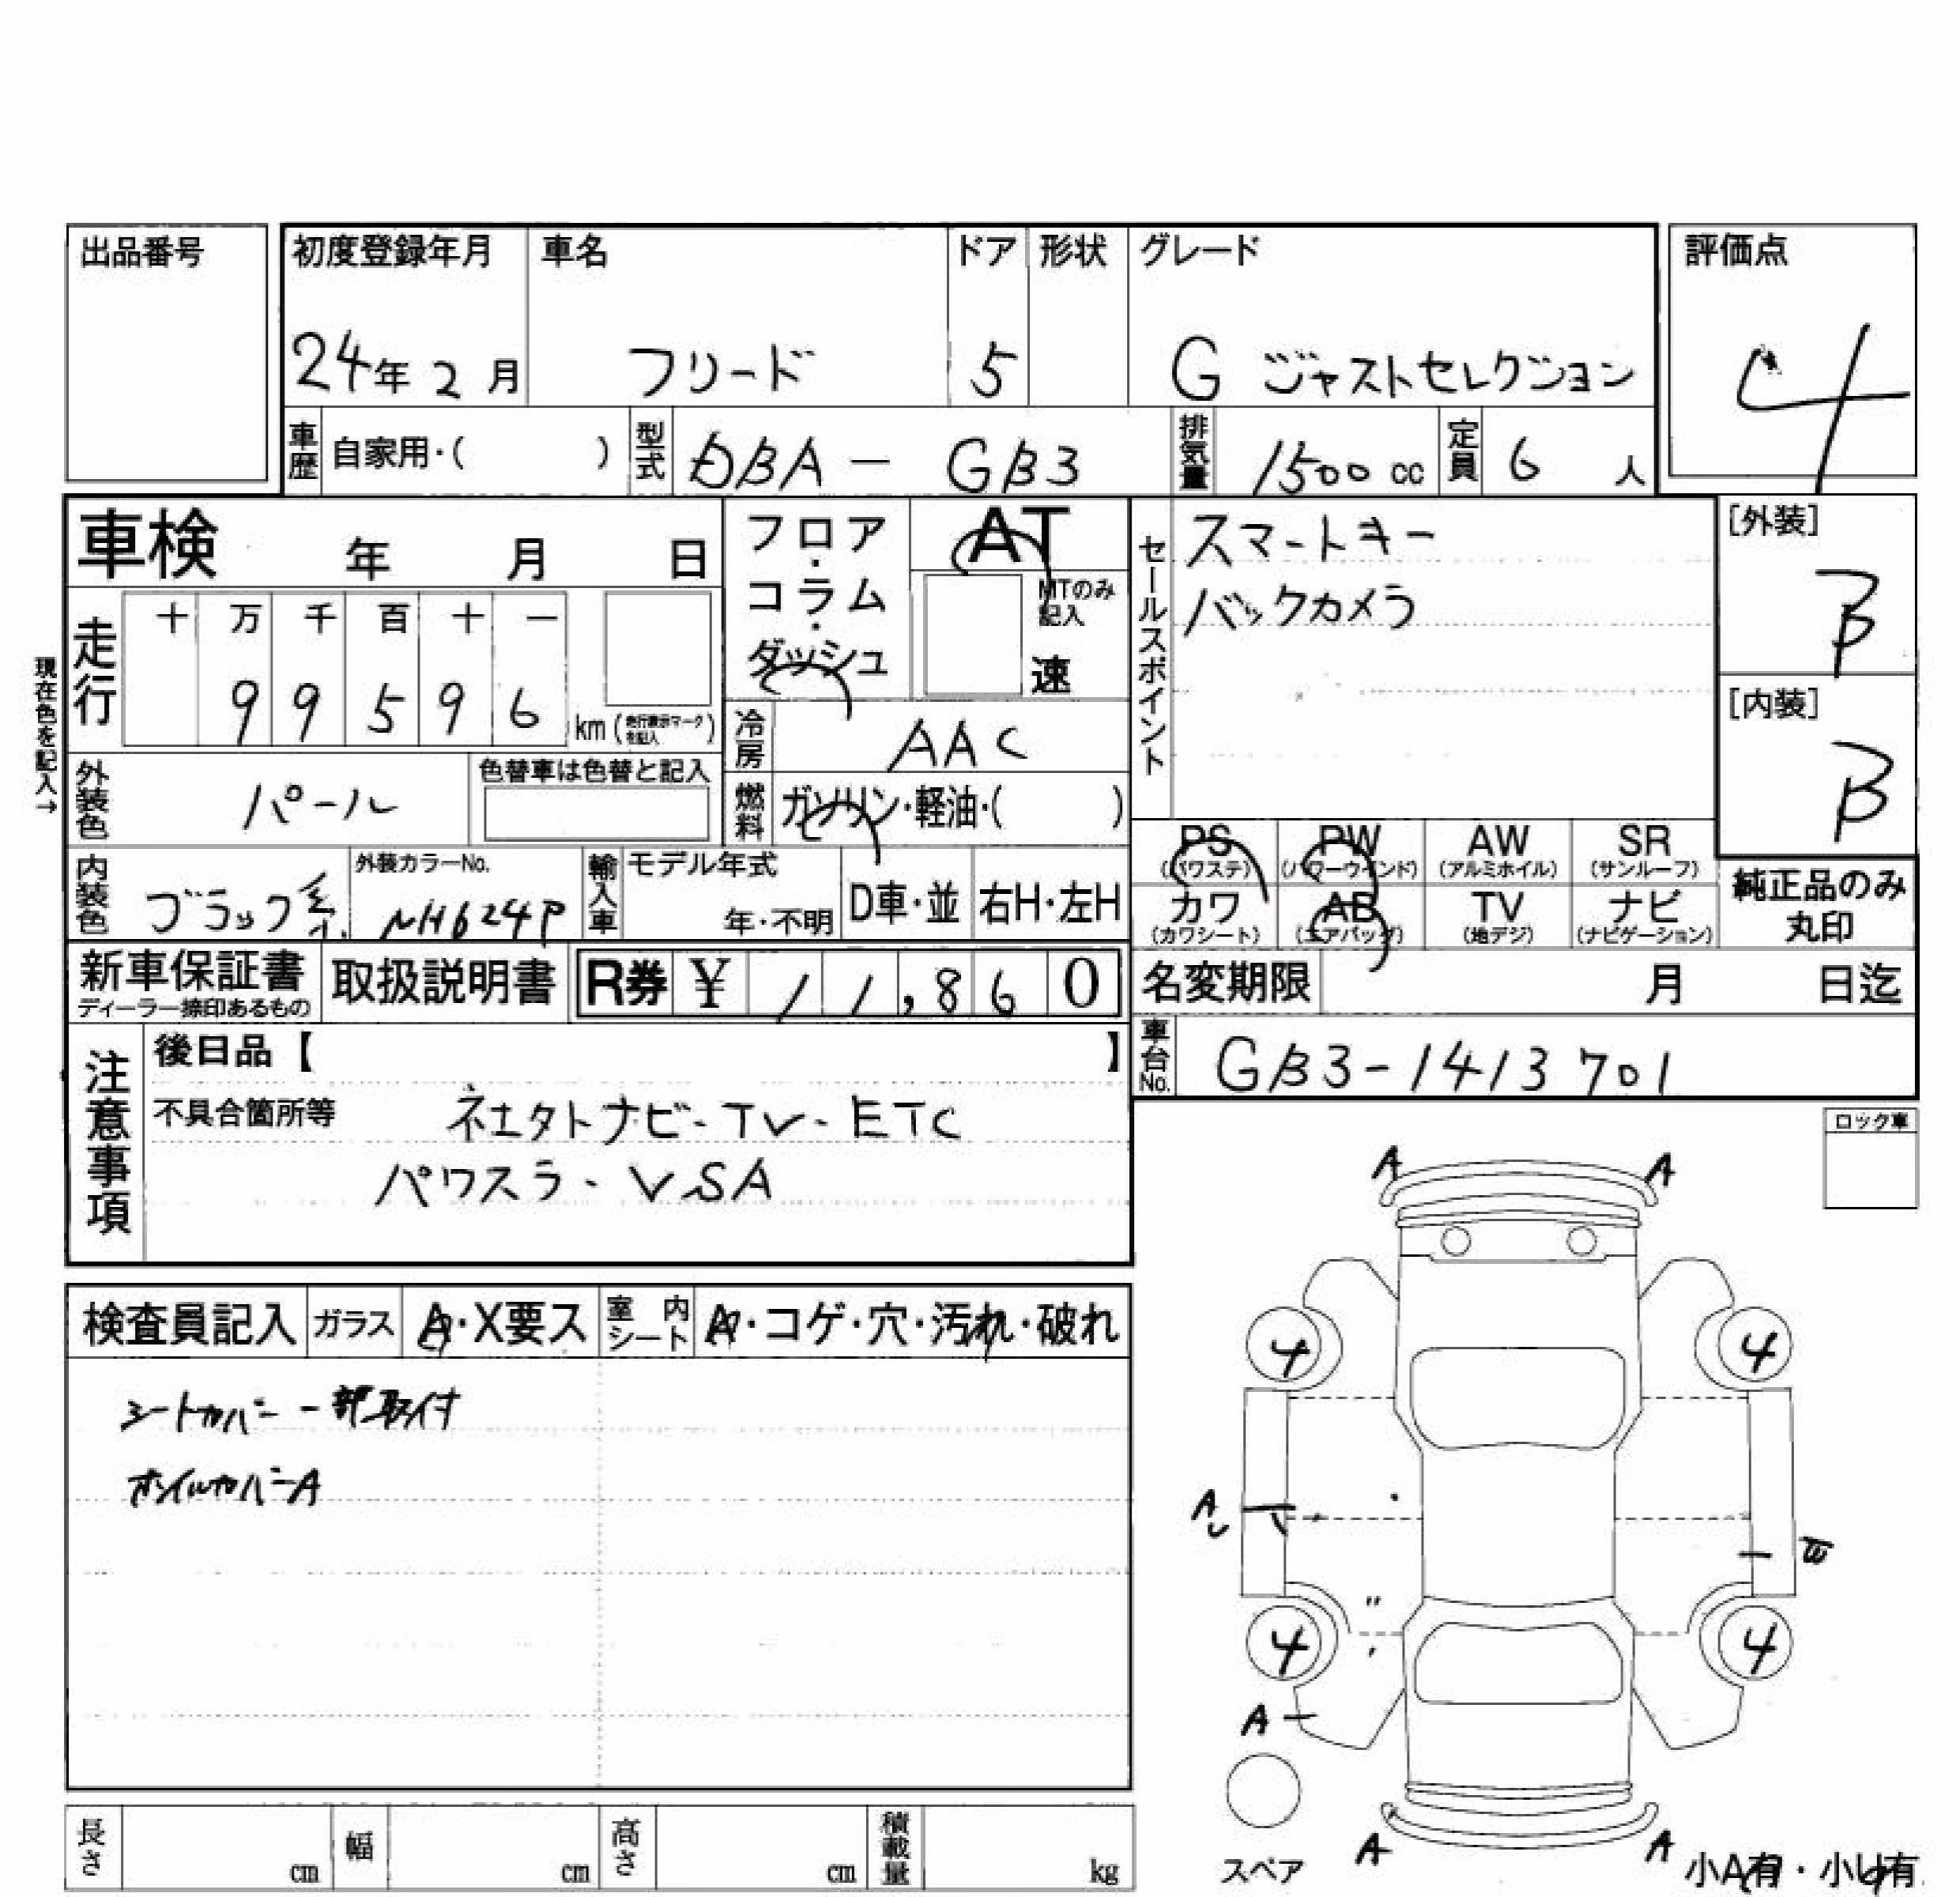 出品番号
初度登録年月 車名 ドア 形状 グレード 評価点
24年 2月 フリード 5 G ジャストセレクション 4
車歴 自家用・( ) 型式 DBA - GB3 排気量 1500cc 定員 6 人
車検 年 月 日
フロア・コラム・ダッシュ
AT
MTのみ記入
速
セールスポイント
スマートキー
バックカメラ
[外装]
B
[内装]
B
現在色を記入→
走行 十 万 千 百 十 一
9 9 5 9 6 km (走行表示マークを記入)
冷房 AAC
外装色 パール 色替車は色替と記入
燃料 ガソリン・軽油・( )
PS (パワステ) PW (パワーウインド) AW (アルミホイル) SR (サンルーフ)
カワ (カワシート) AB (エアバッグ) TV (地デジ) ナビ (ナビゲーション)
純正品のみ丸印
内装色 ブラック系 外装カラーNo. NH624P 輸入車 モデル年式 年・不明 D車・並 右H・左H
新車保証書 ディーラー捺印あるもの 取扱説明書 R券 ¥ 11,860
名変期限 月 日迄
車台No. GB3-1413701
注意事項
後日品【 】
不具合箇所等 ネエタトナビ-TV-ETC
パワスラ-VSA
ロック車
検査員記入 ガラス A・X要ス 室内シート A・コゲ・穴・汚れ・破れ
シートカバー一部取付
ホイルカバーA
A A
4 4
A
4 4
A
スペア
A A
小A有・小U有
長さ cm 幅 cm 高さ cm 積載量 kg